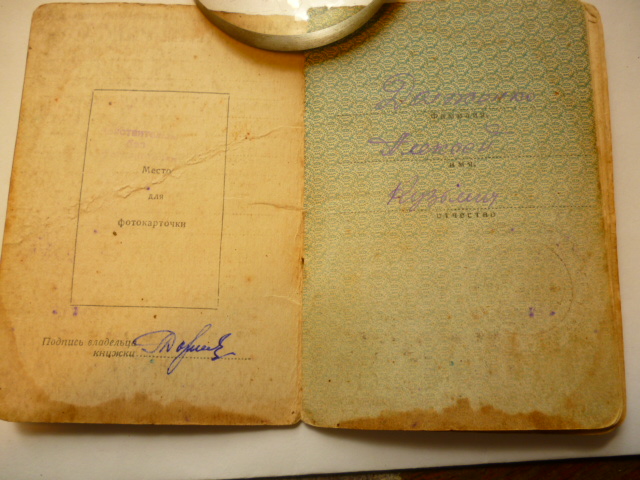 Место
для
фотокарточки
Подпись владельца
книжки
фамилия
Алексей
имя
Кузьмич
отчество